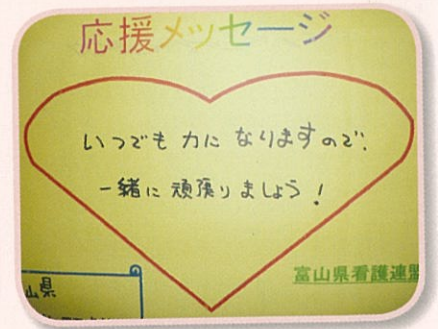 応援メッセージ
いつでも力になりますので、
一緒に頑張りましょう!
富山県看護連盟
山県